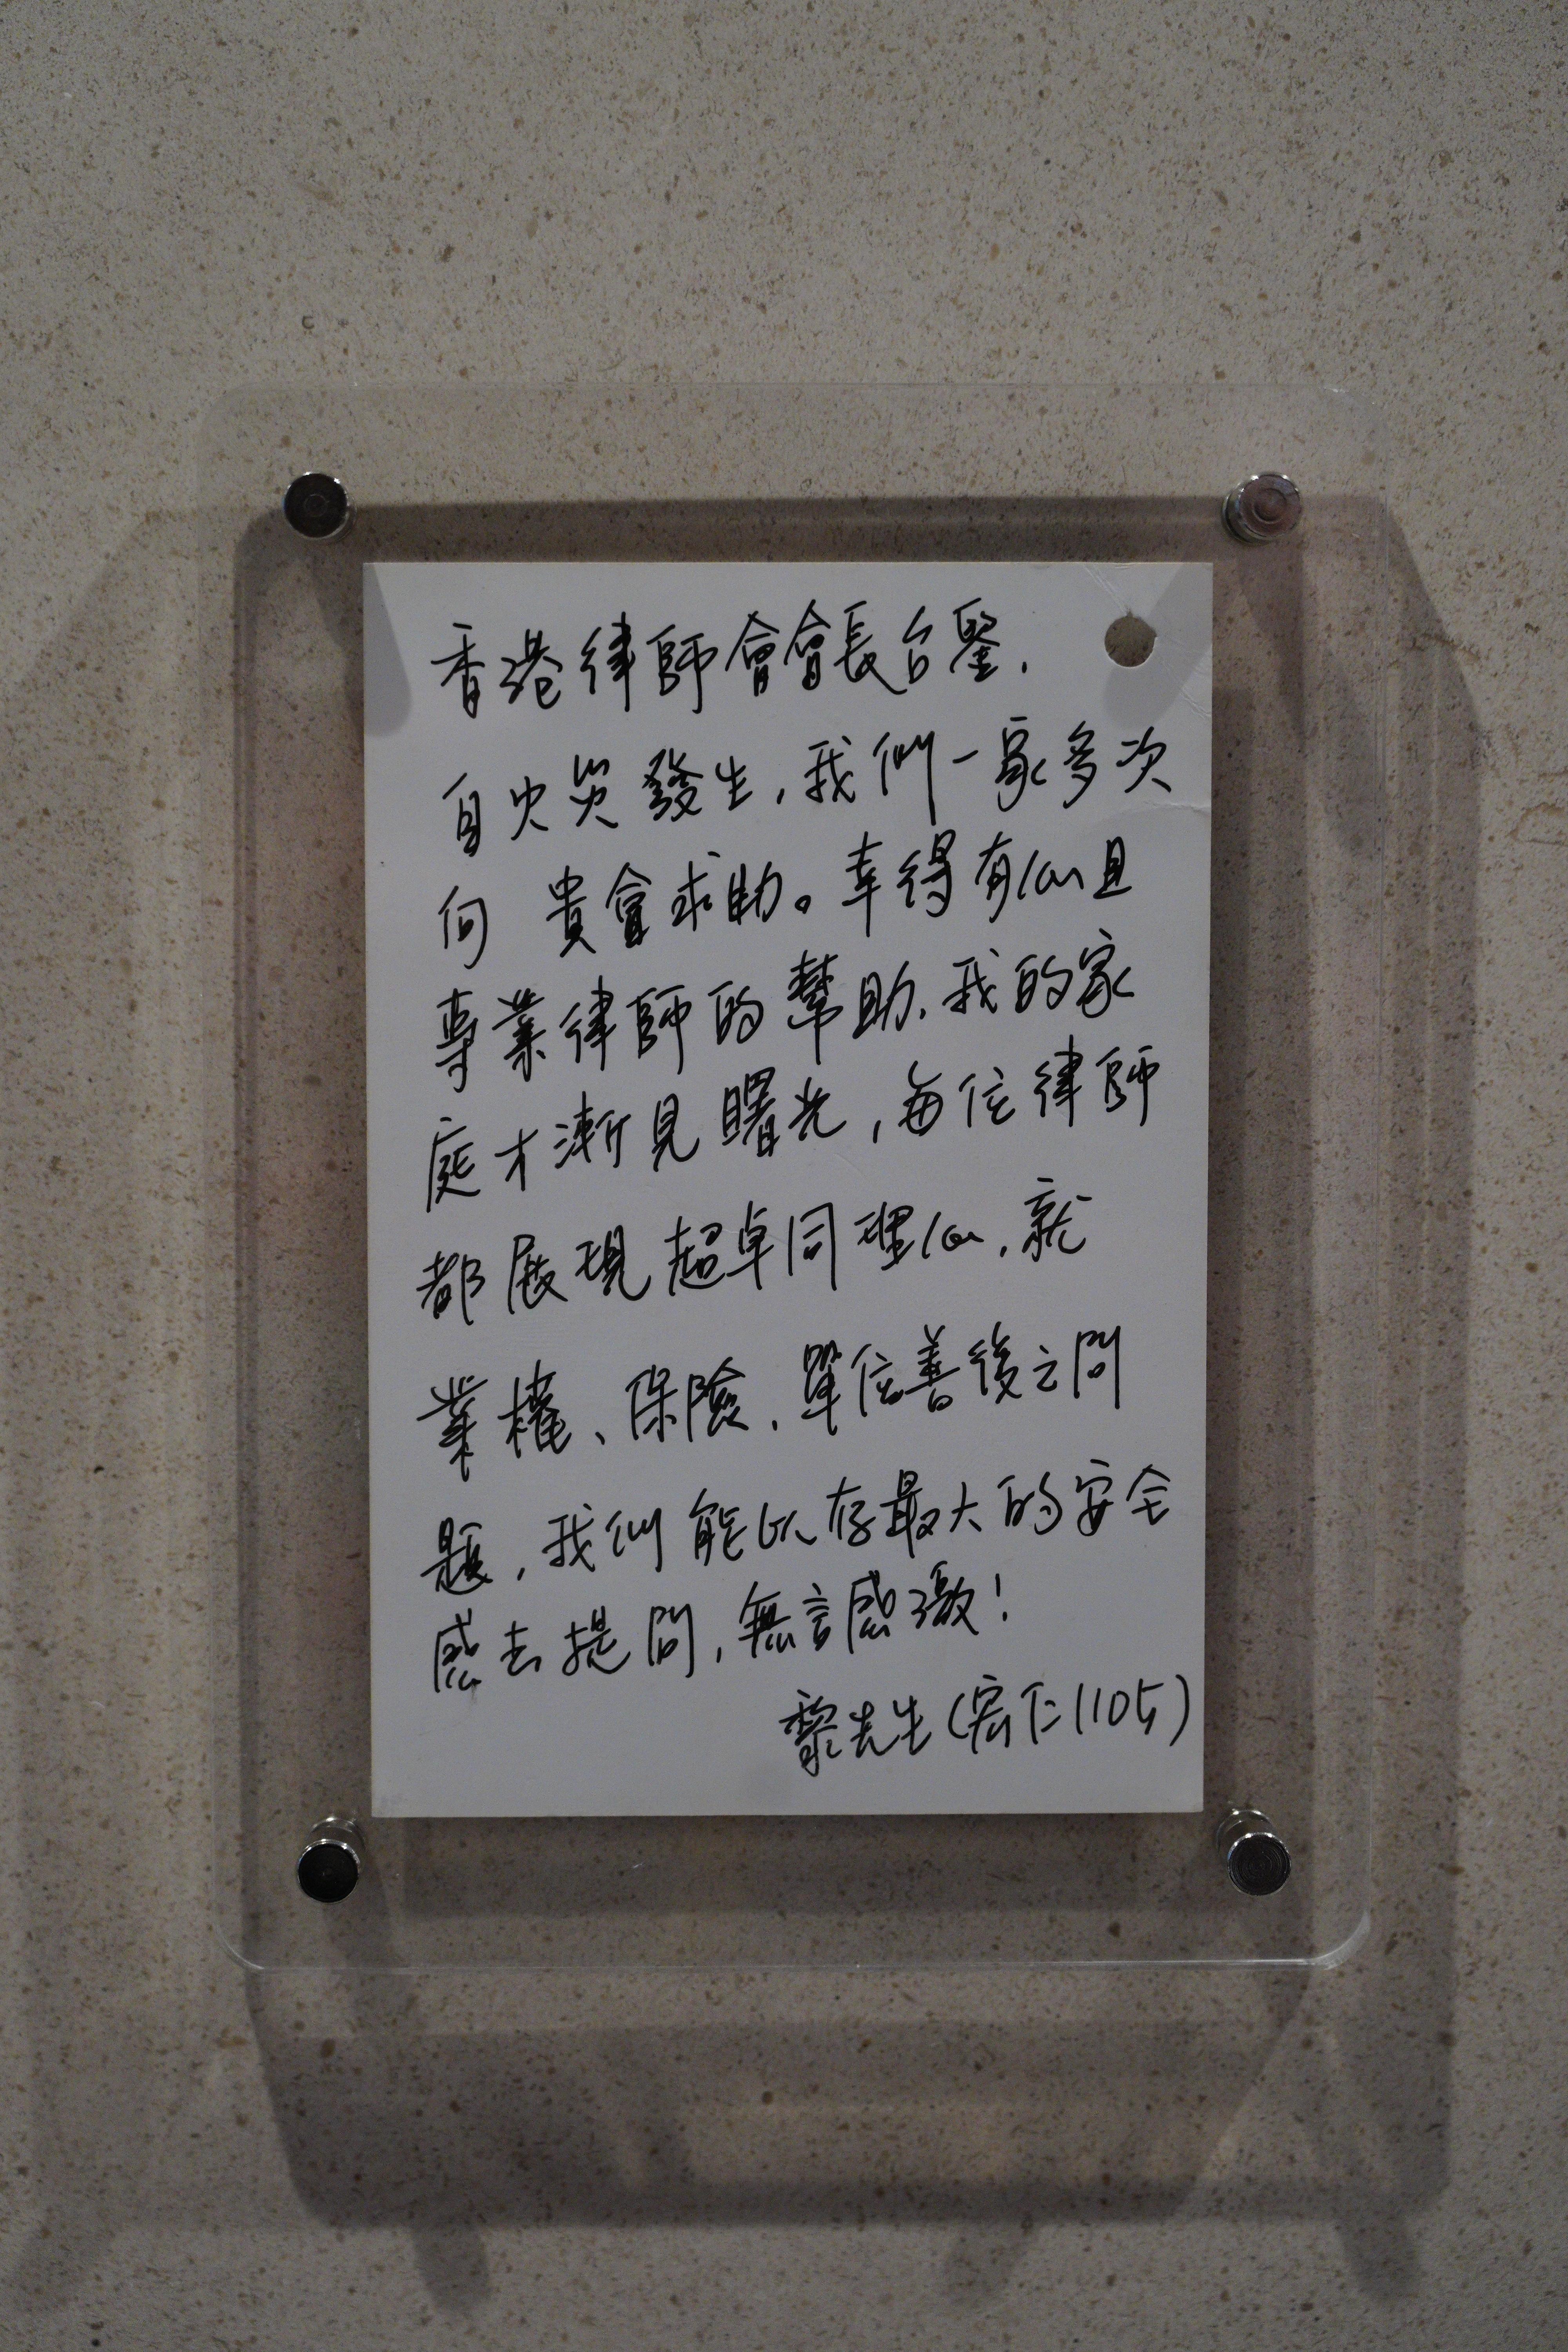 香港律師會會長台鑒，
自火災發生，我們一家多次
向 貴會求助。幸得有心且
專業律師的幫助，我的家
庭才漸見曙光，每位律師
都展現超卓同理心，就
業權、保險、單位善後之問
題，我們能以存最大的安全
感去提問，無言感激！
黎先生（宏仁1105）